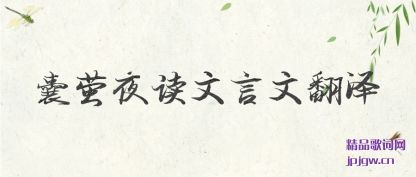 囊萤夜读文言文翻译
精品歌词网
jpjgw.cn